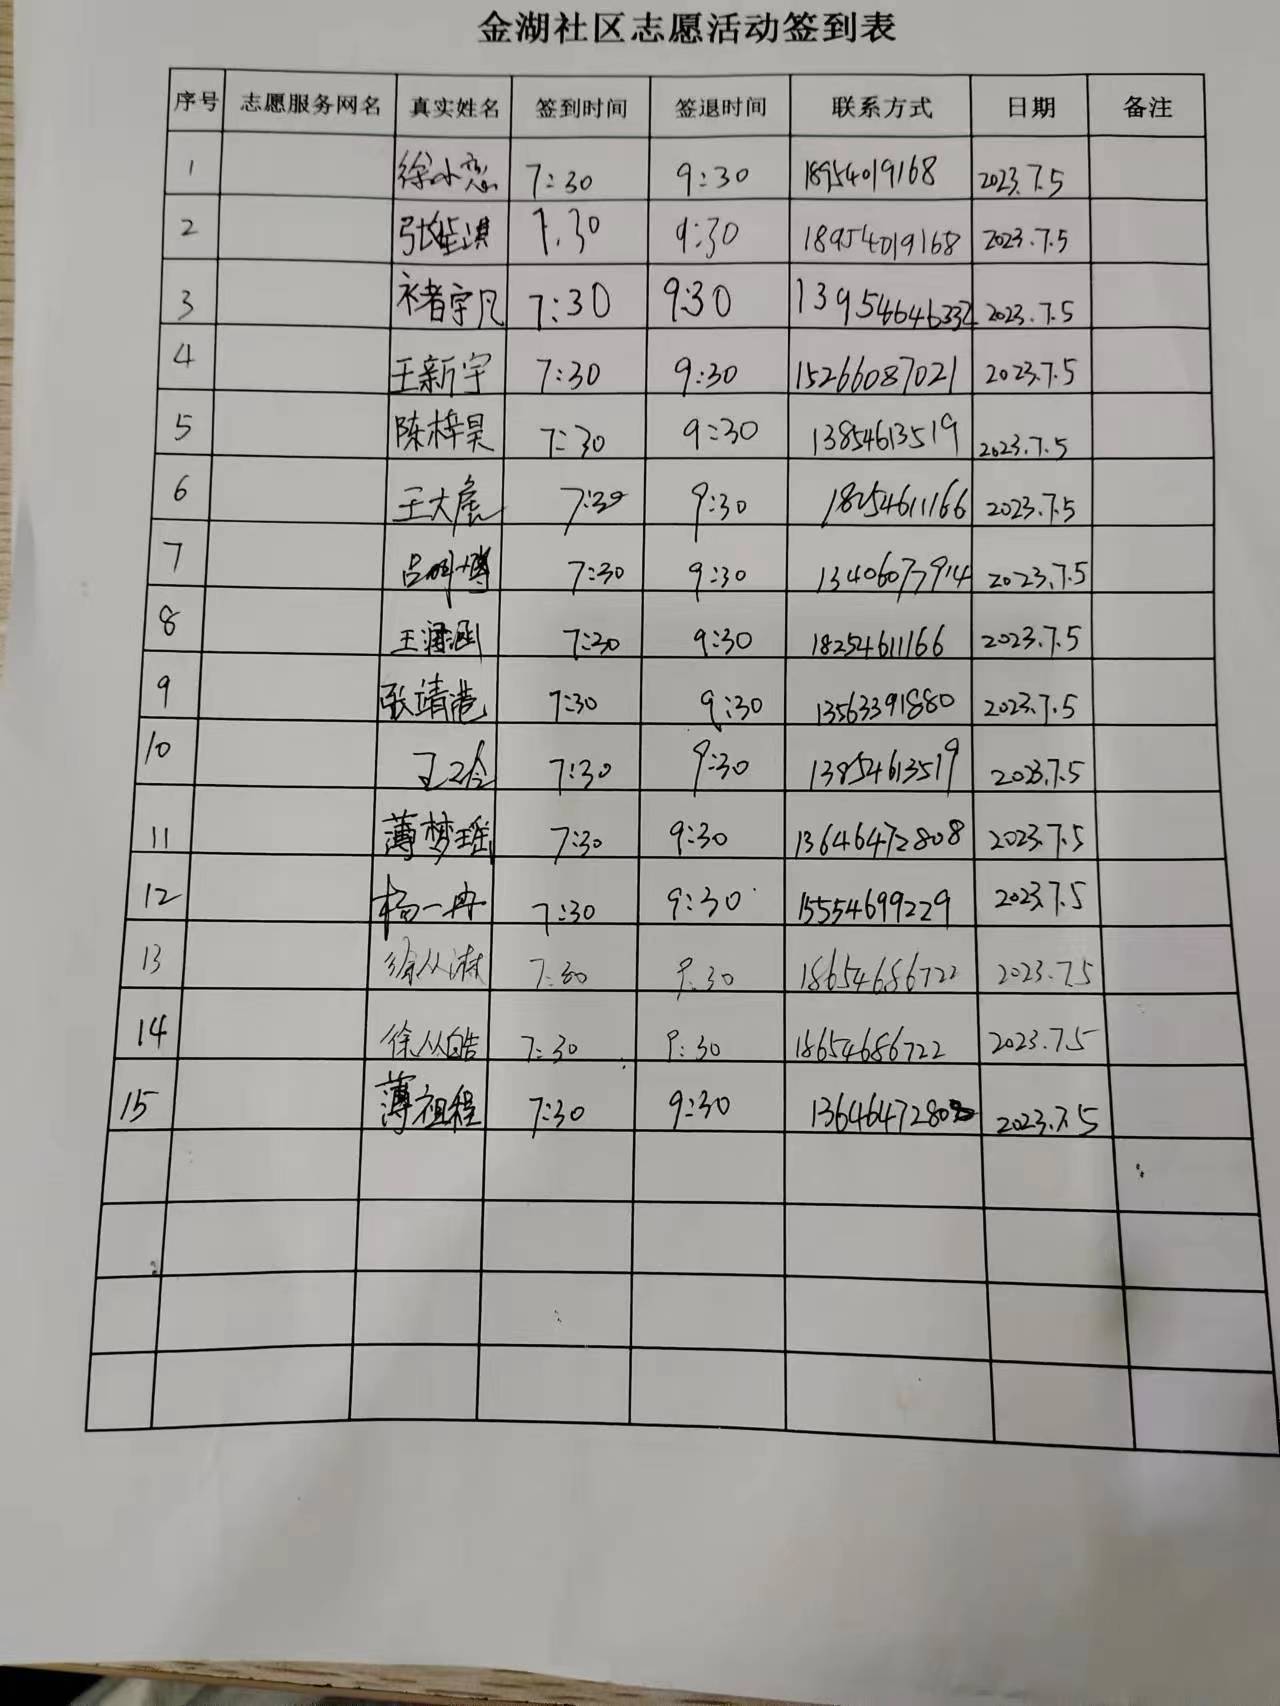 金湖社区志愿活动签到表
序号 志愿服务网名 真实姓名 签到时间 签退时间 联系方式 日期 备注
1 徐小恋 7:30 9:30 18954019168 2023.7.5
2 张 淇 7.30 9:30 18954019168 2023.7.5
3 褚宇凡 7:30 9:30 13954646332 2023.7.5
4 王新宇 7:30 9:30 15266087021 2023.7.5
5 陈梓昊 7:30 9:30 13854613519 2023.7.5
6 王大 7:30 9:30 18254611166 2023.7.5
7 吕明博 7:30 9:30 13406077914 2023.7.5
8 王 涵 7:30 9:30 18254611166 2023.7.5
9 张靖港 7:30 9:30 13563391880 2023.7.5
10 王 7:30 9:30 13854613519 2023.7.5
11 薄梦瑶 7:30 9:30 13646472808 2023.7.5
12 杨一冉 7:30 9:30 15554699229 2023.7.5
13 徐从淋 7:30 9:30 18654686722 2023.7.5
14 徐从皓 7:30 9:30 18654686722 2023.7.5
15 薄祖程 7:30 9:30 13646472808 2023.7.5